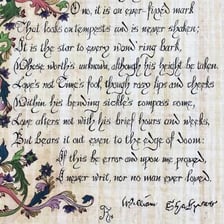 O no, it is an ever fixed mark
That looks on tempests and is never shaken;
It is the star to every wand'ring bark,
Whose worth's unknown, although his height be taken.
Love's not Time's fool, though rosy lips and cheeks
Within his bending sickle's compass come,
Love alters not with his brief hours and weeks,
But bears it out even to the edge of doom:
If this be error and upon me proved,
I never writ, nor no man ever loved.
William